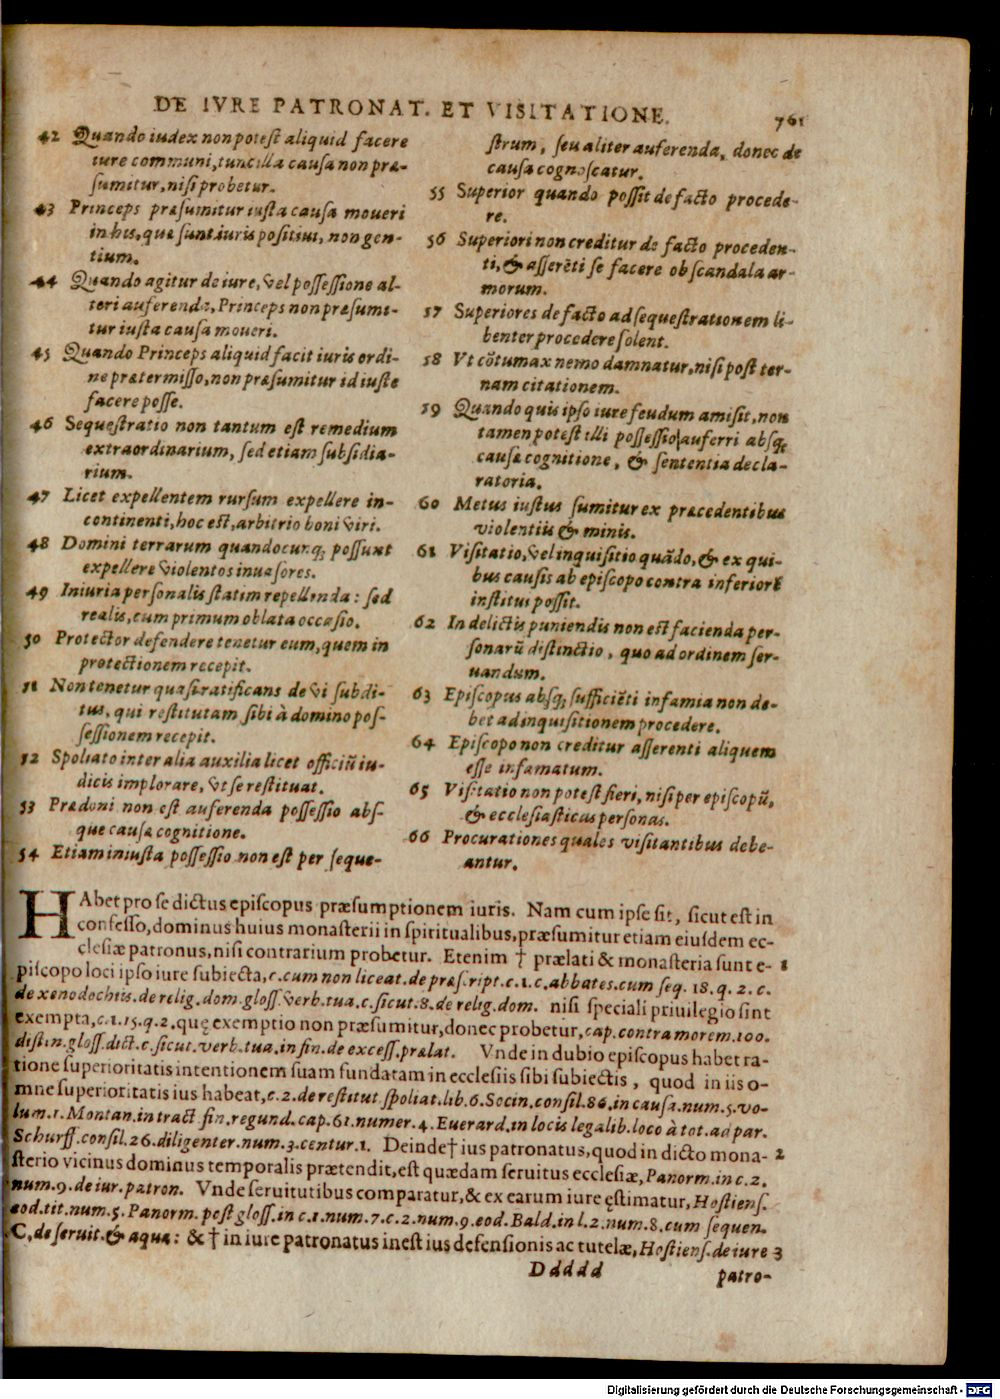 DE IVRE PATRONAT. ET VISITATIONE. 761
42 Quando iudex non potest aliquid facere
iure communi, tunc illa causa non præ-
sumitur, nisi probetur.
43 Princeps præsumitur iusta causa moueri
in his, quæ sunt iuris positiui, non gen-
tium.
44 Quando agitur de iure, vel possessione al-
teri auferenda, Princeps non præsumi-
tur iusta causa moueri.
45 Quando Princeps aliquid facit iuris ordi-
ne prætermisso, non præsumitur id iuste
facere posse.
46 Sequestratio non tantum est remedium
extraordinarium, sed etiam subsidia-
rium.
47 Licet expellentem rursum expellere in-
continenti, hoc est, arbitrio boni viri.
48 Domini terrarum quandocunq; possunt
expellere violentos inuasores.
49 Iniuria personalis statim repellenda: sed
realis, cum primum oblata occasio.
50 Protector defendere tenetur eum, quem in
protectionem recepit.
51 Non tenetur quasi ratificans de vi subdi-
tus, qui restitutam sibi à domino pos-
sessionem recepit.
52 Spoliato inter alia auxilia licet officiũ iu-
dicis implorare, vt se restituat.
53 Prædoni non est auferenda possessio abs-
que causæ cognitione.
54 Etiam iniusta possessio non est per seque-
strum, seu aliter auferenda, donec de
causa cognoscatur.
55 Superior quando possit de facto procede-
re.
56 Superiori non creditur de facto proceden-
ti, & asserēti se facere ob scandala ar-
morum.
57 Superiores de facto ad sequestrationem li-
benter procedere solent.
58 Vt cōtumax nemo damnatur, nisi post ter-
nam citationem.
59 Quando quis ipso iure feudum amisit, non
tamen potest illi possessio auferri absq;
causæ cognitione, & sententia decla-
ratoria.
60 Metus iustus sumitur ex præcedentibus
violentiis & minis.
61 Visitatio, vel inquisitio quādo, & ex qui-
bus causis ab episcopo contra inferiorē
institui possit.
62 In delictis puniendis non est facienda per-
sonarũ distinctio, quo ad ordinem ser-
uandum.
63 Episcopus absq; sufficiēti infamia non de-
bet ad inquisitionem procedere.
64 Episcopo non creditur asserenti aliquem
esse infamatum.
65 Visitatio non potest fieri, nisi per episcopũ,
& ecclesiasticas personas.
66 Procurationes quales visitantibus debe-
antur.
HAbet pro se dictus episcopus præsumptionem iuris. Nam cum ipse sit, sicut est in
confesso, dominus huius monasterii in spiritualibus, præsumitur etiam eiusdem ec-
clesiæ patronus, nisi contrarium probetur. Etenim † prælati & monasteria sunt e- 1
piscopo loci ipso iure subiecta, c. cum non liceat. de præscript. c. 1. c. abbates. cum seq. 18. q. 2. c.
de xenodochiis. de relig. dom. gloss. verb. tua. c. sicut. 8. de relig. dom. nisi speciali priuilegio sint
exempta, c. 1. 15. q. 2. quę exemptio non præsumitur, donec probetur, cap. contra morem. 100.
distin. gloss. dict. c. sicut. verb. tua. in fin. de excess. prælat. Vnde in dubio episcopus habet ra-
tione superioritatis intentionem suam fundatam in ecclesiis sibi subiectis, quod in iis o-
mne superioritatis ius habeat, c. 2. de restitut. spoliat. lib. 6. Socin. consil. 86. in causa. num. 5. vo-
lum. 1. Montan. in tract. fin. regund. cap. 61. numer. 4. Euerard. in locis legalib. loco à tot. ad par.
Schurff. consil. 26. diligenter. num. 3. centur. 1. Deinde † ius patronatus, quod in dicto mona- 2
sterio vicinus dominus temporalis prætendit, est quædam seruitus ecclesiæ, Panorm. in c. 2.
num. 9. de iur. patron. Vnde seruitutibus comparatur, & ex earum iure ęstimatur, Hostiens.
eod. tit. num. 5. Panorm. post gloss. in c. 1. num. 7. c. 2. num. 9. eod. Bald. in l. 2. num. 8. cum sequen.
C. de seruit. & aqua: & † in iure patronatus inest ius defensionis ac tutelæ, Hostiens. de iure 3
Ddddd patro-
Digitalisierung gefördert durch die Deutsche Forschungsgemeinschaft - DFG